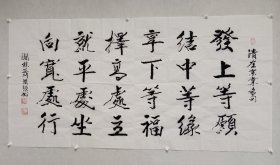 清左宗棠句
發上等願
結中等緣
享下等福
擇高處立
就平處坐
向寬處行